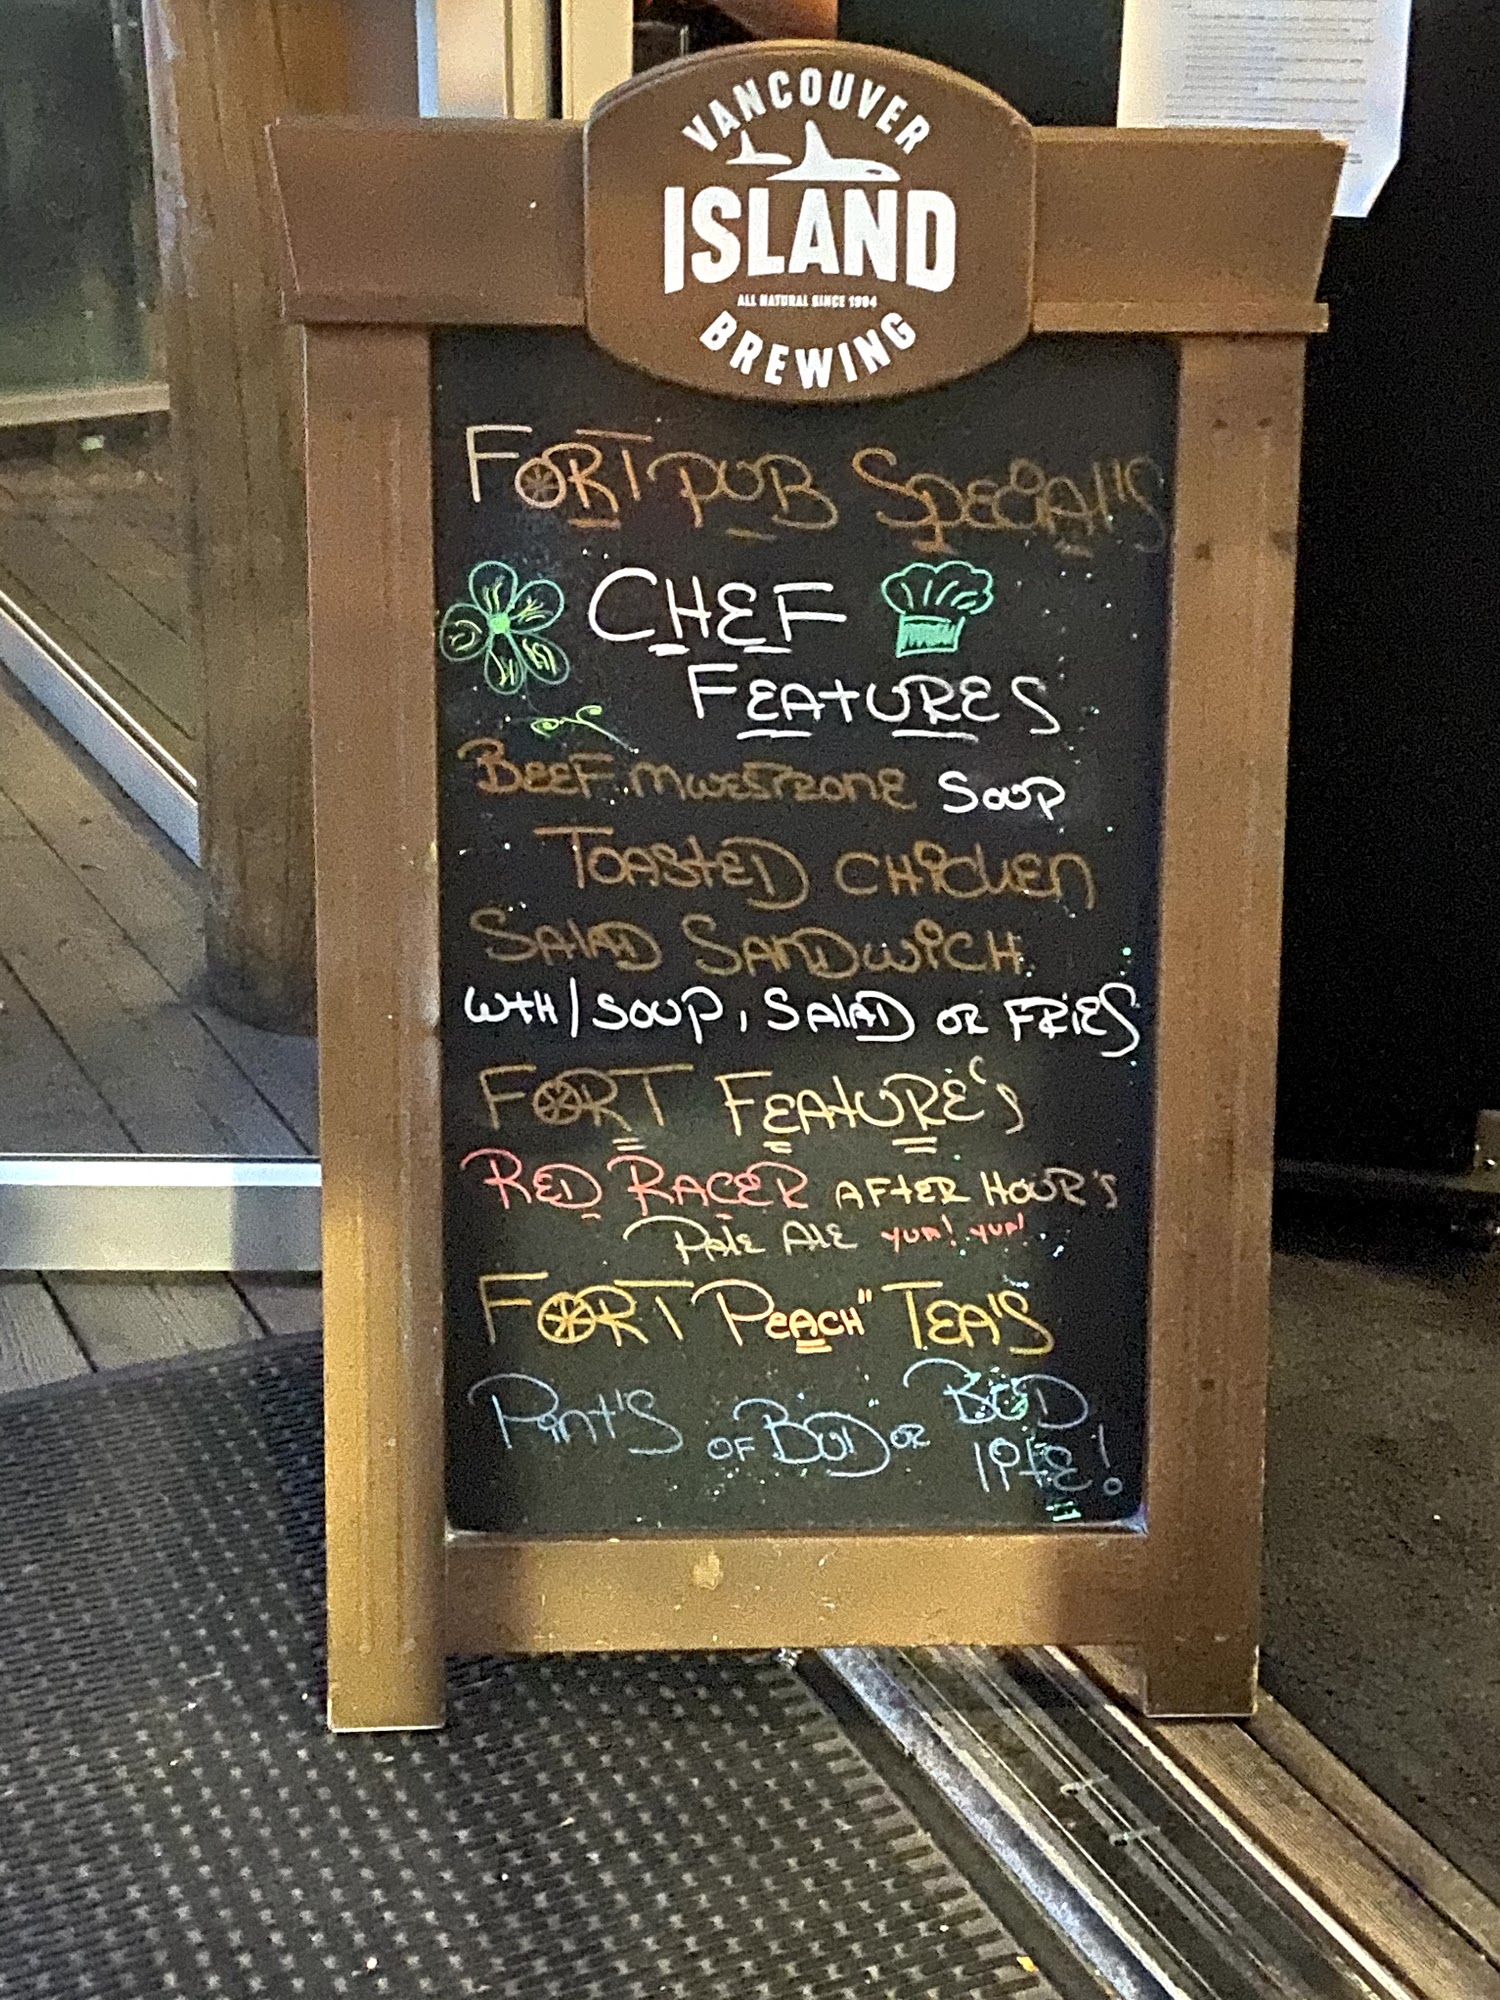 VANCOUVER
ISLAND
ALL NATURAL SINCE 1984
BREWING
FORT PUB SPECIAL'S
CHEF
FEATURES
BEEF MINESTRONE SOUP
TOASTED CHICKEN
SALAD SANDWICH
WITH/SOUP, SALAD OR FRIES
FORT FEATURE'S
RED RACER AFTER HOUR'S
PALE ALE YUM! YUM!
FORT PEACH" TEA'S
PINT'S OF BUD OR BUD
LITE!